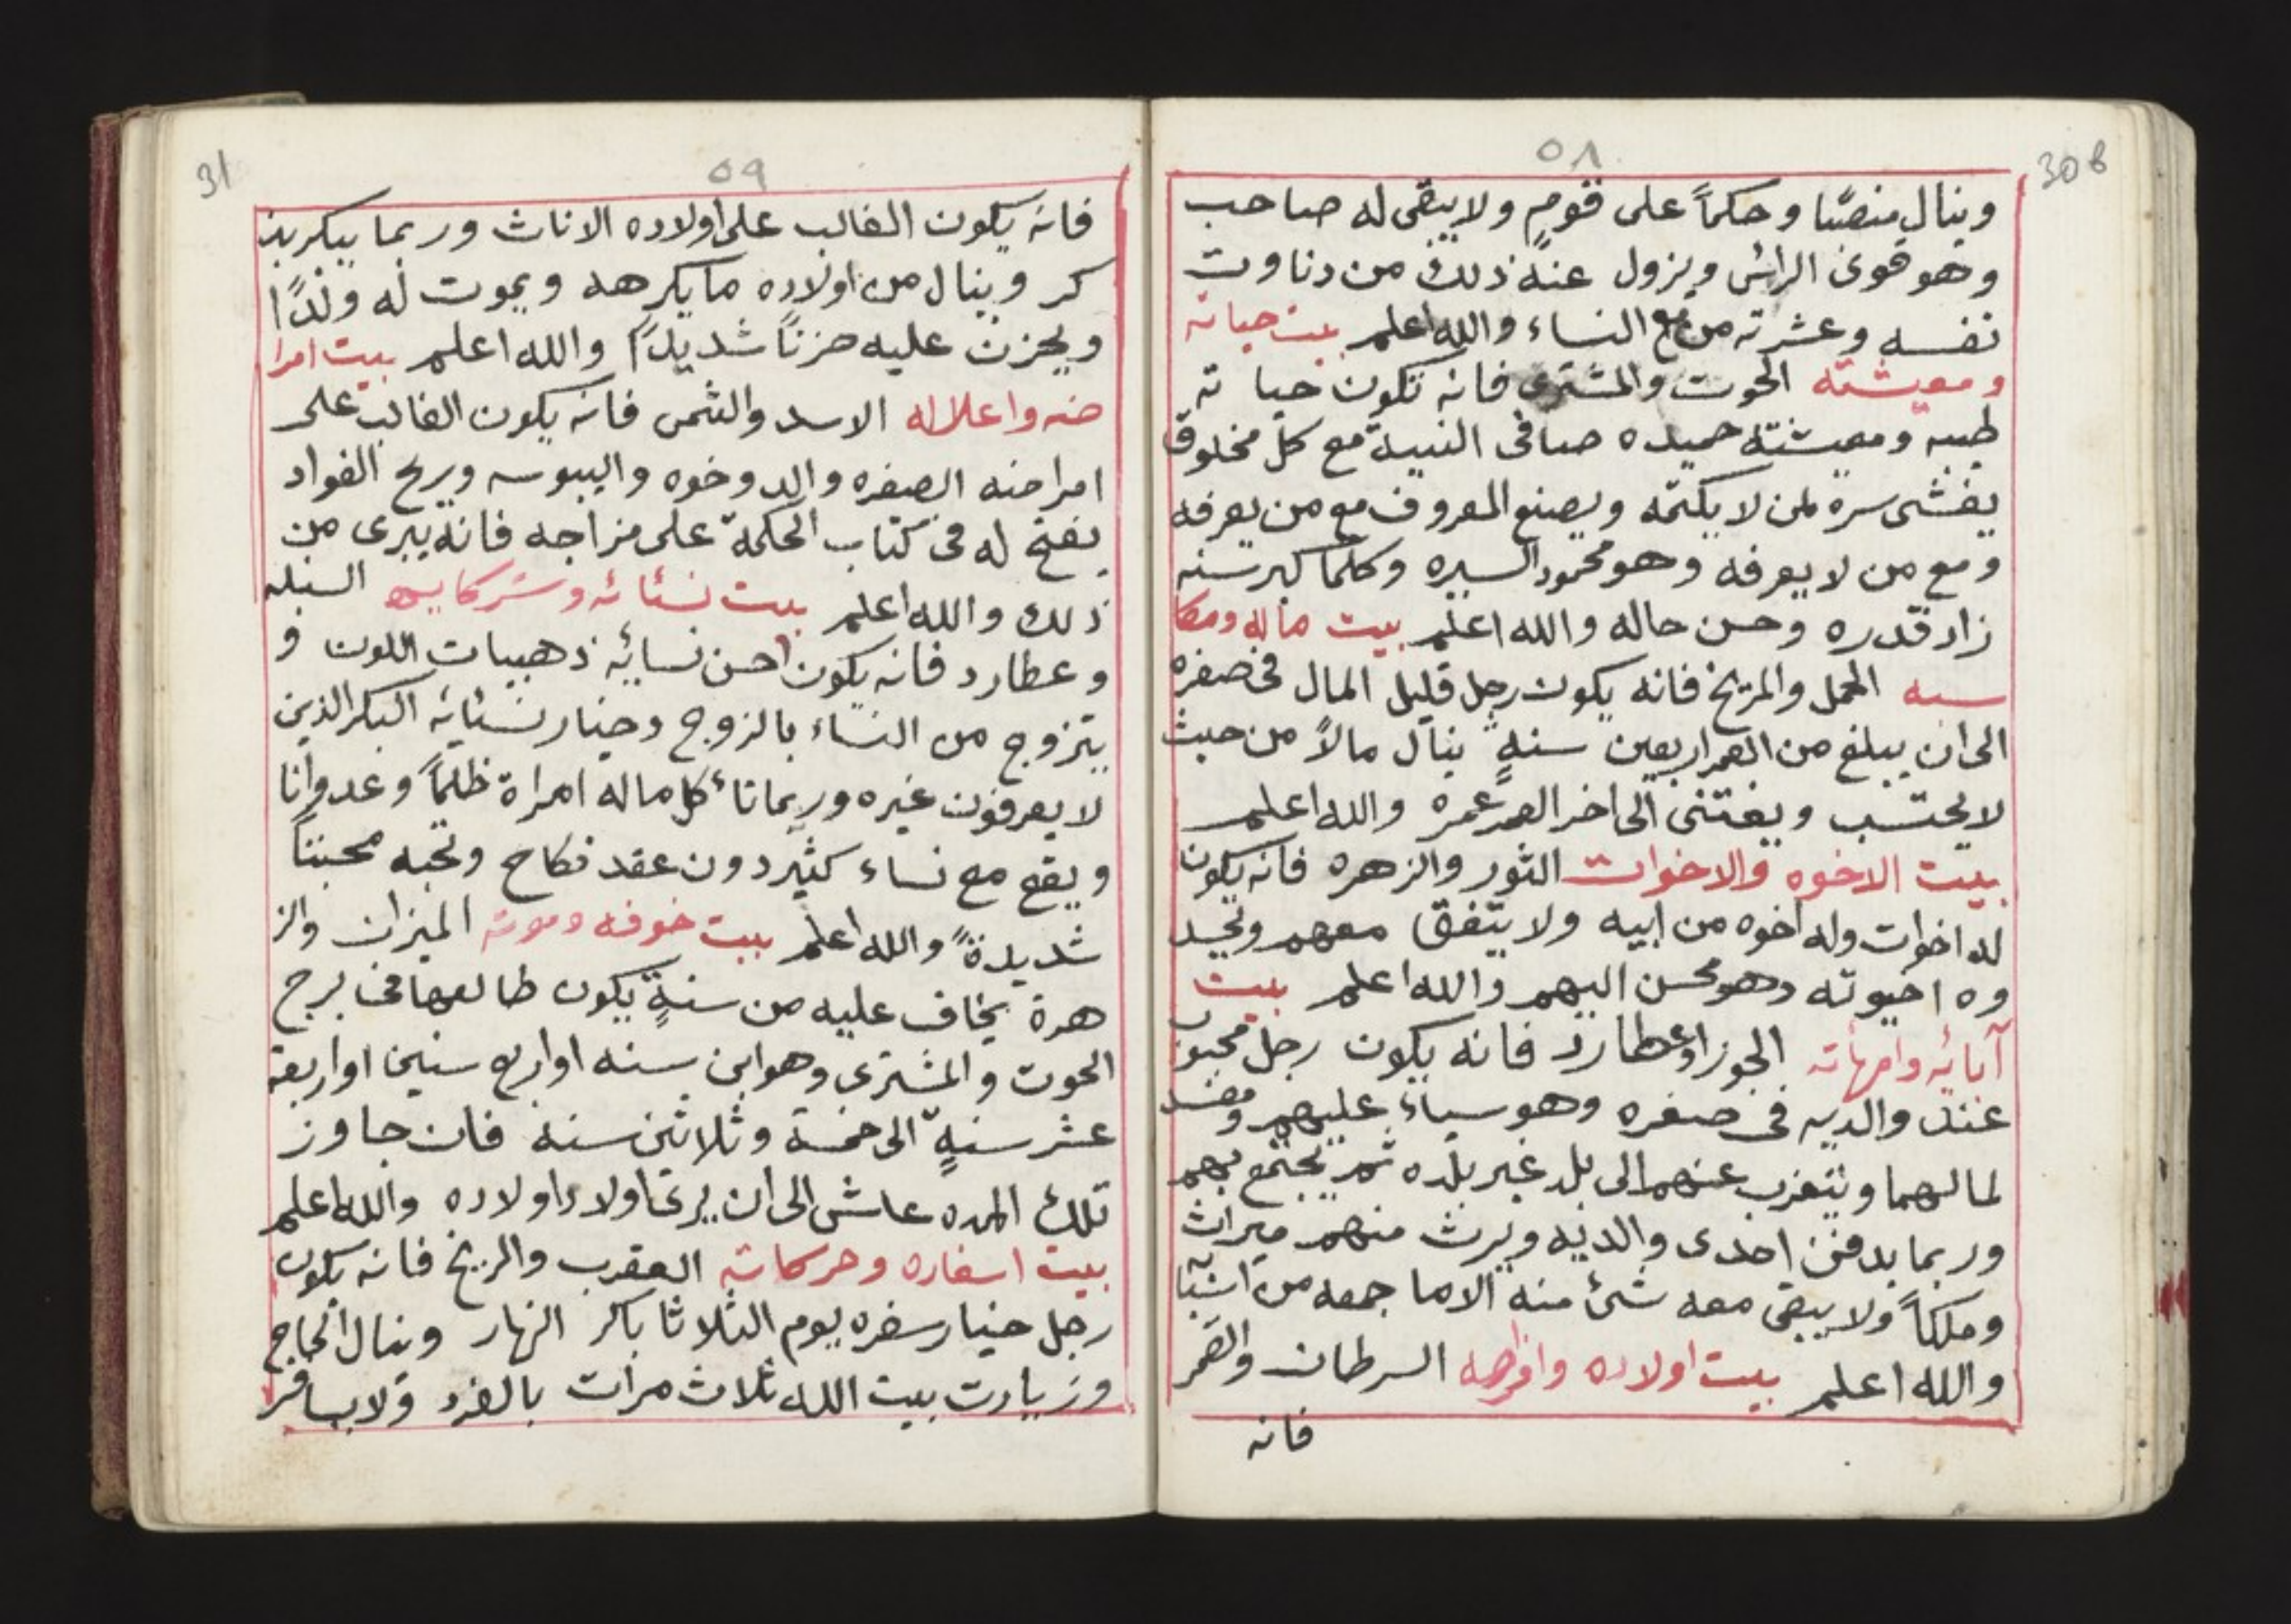 30b
٥٨
وينال منصبًا وحكماً على قومٍ ولا يبقى له صاحب
وهو قوى الرائى ويزول عنه ذلك من دناوت
نفسه وعشرته من مع النساء والله اعلم بيت حياته
ومعيشته الحوت والمشترى فانه تكون حيا ته
طيبه ومعيشته حميده صافى النيية مع كل مخلوق
يفشى سره لمن لا يكتمه ويصنع المعروف مع من يعرفه
ومع من لا يعرفه وهو محمود السيره وكلما كبر سنه
زاد قدره وحسن حاله والله اعلم بيت ماله ومكا
سبه الحمل والمريخ فانه يكون رجل قليل المال فى صغره
الى ان يبلغ من العمر اربعين سنةٍ ينال مالاً من حيث
لا يحتسب ويغتنى الى اخر العمر عمره والله اعلم
بيت الاخوه والاخوات الثور والزهره فانه يكون
له اخوات وله اخوه من ابيه ولا يتفق معهم ويحسد
وه اخيوته وهو محسن اليهم والله اعلم بيت
آبائه وامهاته الجوزا وعطارد فانه يكون رجل محبوب
عند والديه فى صغره وهو سياء عليهم ومفسد
لمالهما ويتغرب عنهم الى بلد غير بلده ثم يجتمع بهم
وربما يدفن احدى والديه ويرث منهم ميراث
وملكاً ولا يبقى معه شئ منه الا ما جمعه من اشيا
والله اعلم بيت اولاده وافراحه السرطان والقمر
فانه
31
٥٩
فانه يكون الغالب على اولاده الاناث وربما يبكر بذ
كر وينال من اولاده ما يكرهه ويموت له ولدًا
ويحزن عليه حزناً شديدًا والله اعلم بيت امرا
ضه واعلاله الاسد والشمس فانه يكون الغالب على
امراضه الصفره والدوخوه واليبوسه وريح الفواد
يفتح له فى كتاب الحكمة على مزاجه فانه يبرى من
ذلك والله اعلم بيت نسائه وشركايه السنبله
وعطارد فانه يكون احسن نسايه ذهبيات اللون و
يتزوج من النساء بالزوج وخيار نسائه البكر الذين
لا يعرفون غيره وربما تاءكل ماله امراة ظلماً وعدوانا
ويقع مع نساء كثير دون عقد نكاح وتحبه محبتاً
شديدةً والله اعلم بيت خوفه وموته الميزان والز
هرة يخاف عليه من سنةٍ يكون طالعها فى برج
الحوت والمشترى وهو ابن سنه او اربع سنين او اربعة
عشر سنةٍ الى خمسة وثلاثين سنة فان جاوز
تلك المده عاش الى ان يرى اولاد اولاده والله اعلم
بيت اسفاره وحركاته العقرب والمريخ فانه يكون
رجل خيار سفره يوم الثلاثا باكر النهار وينال الحاج
وزيارت بيت الله ثلاث مرات بالفرد ولا يسافر